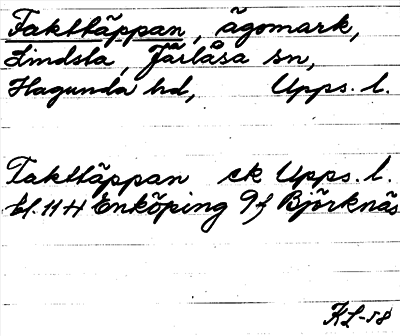 Takttäppan, ägomark,
Lindsta, Järlåsa sn,
Hagunda hd, Upps. l.
Takttäppan ek Upps. l.
bl. 11 H Enköping 9f Björknäs
KL-58